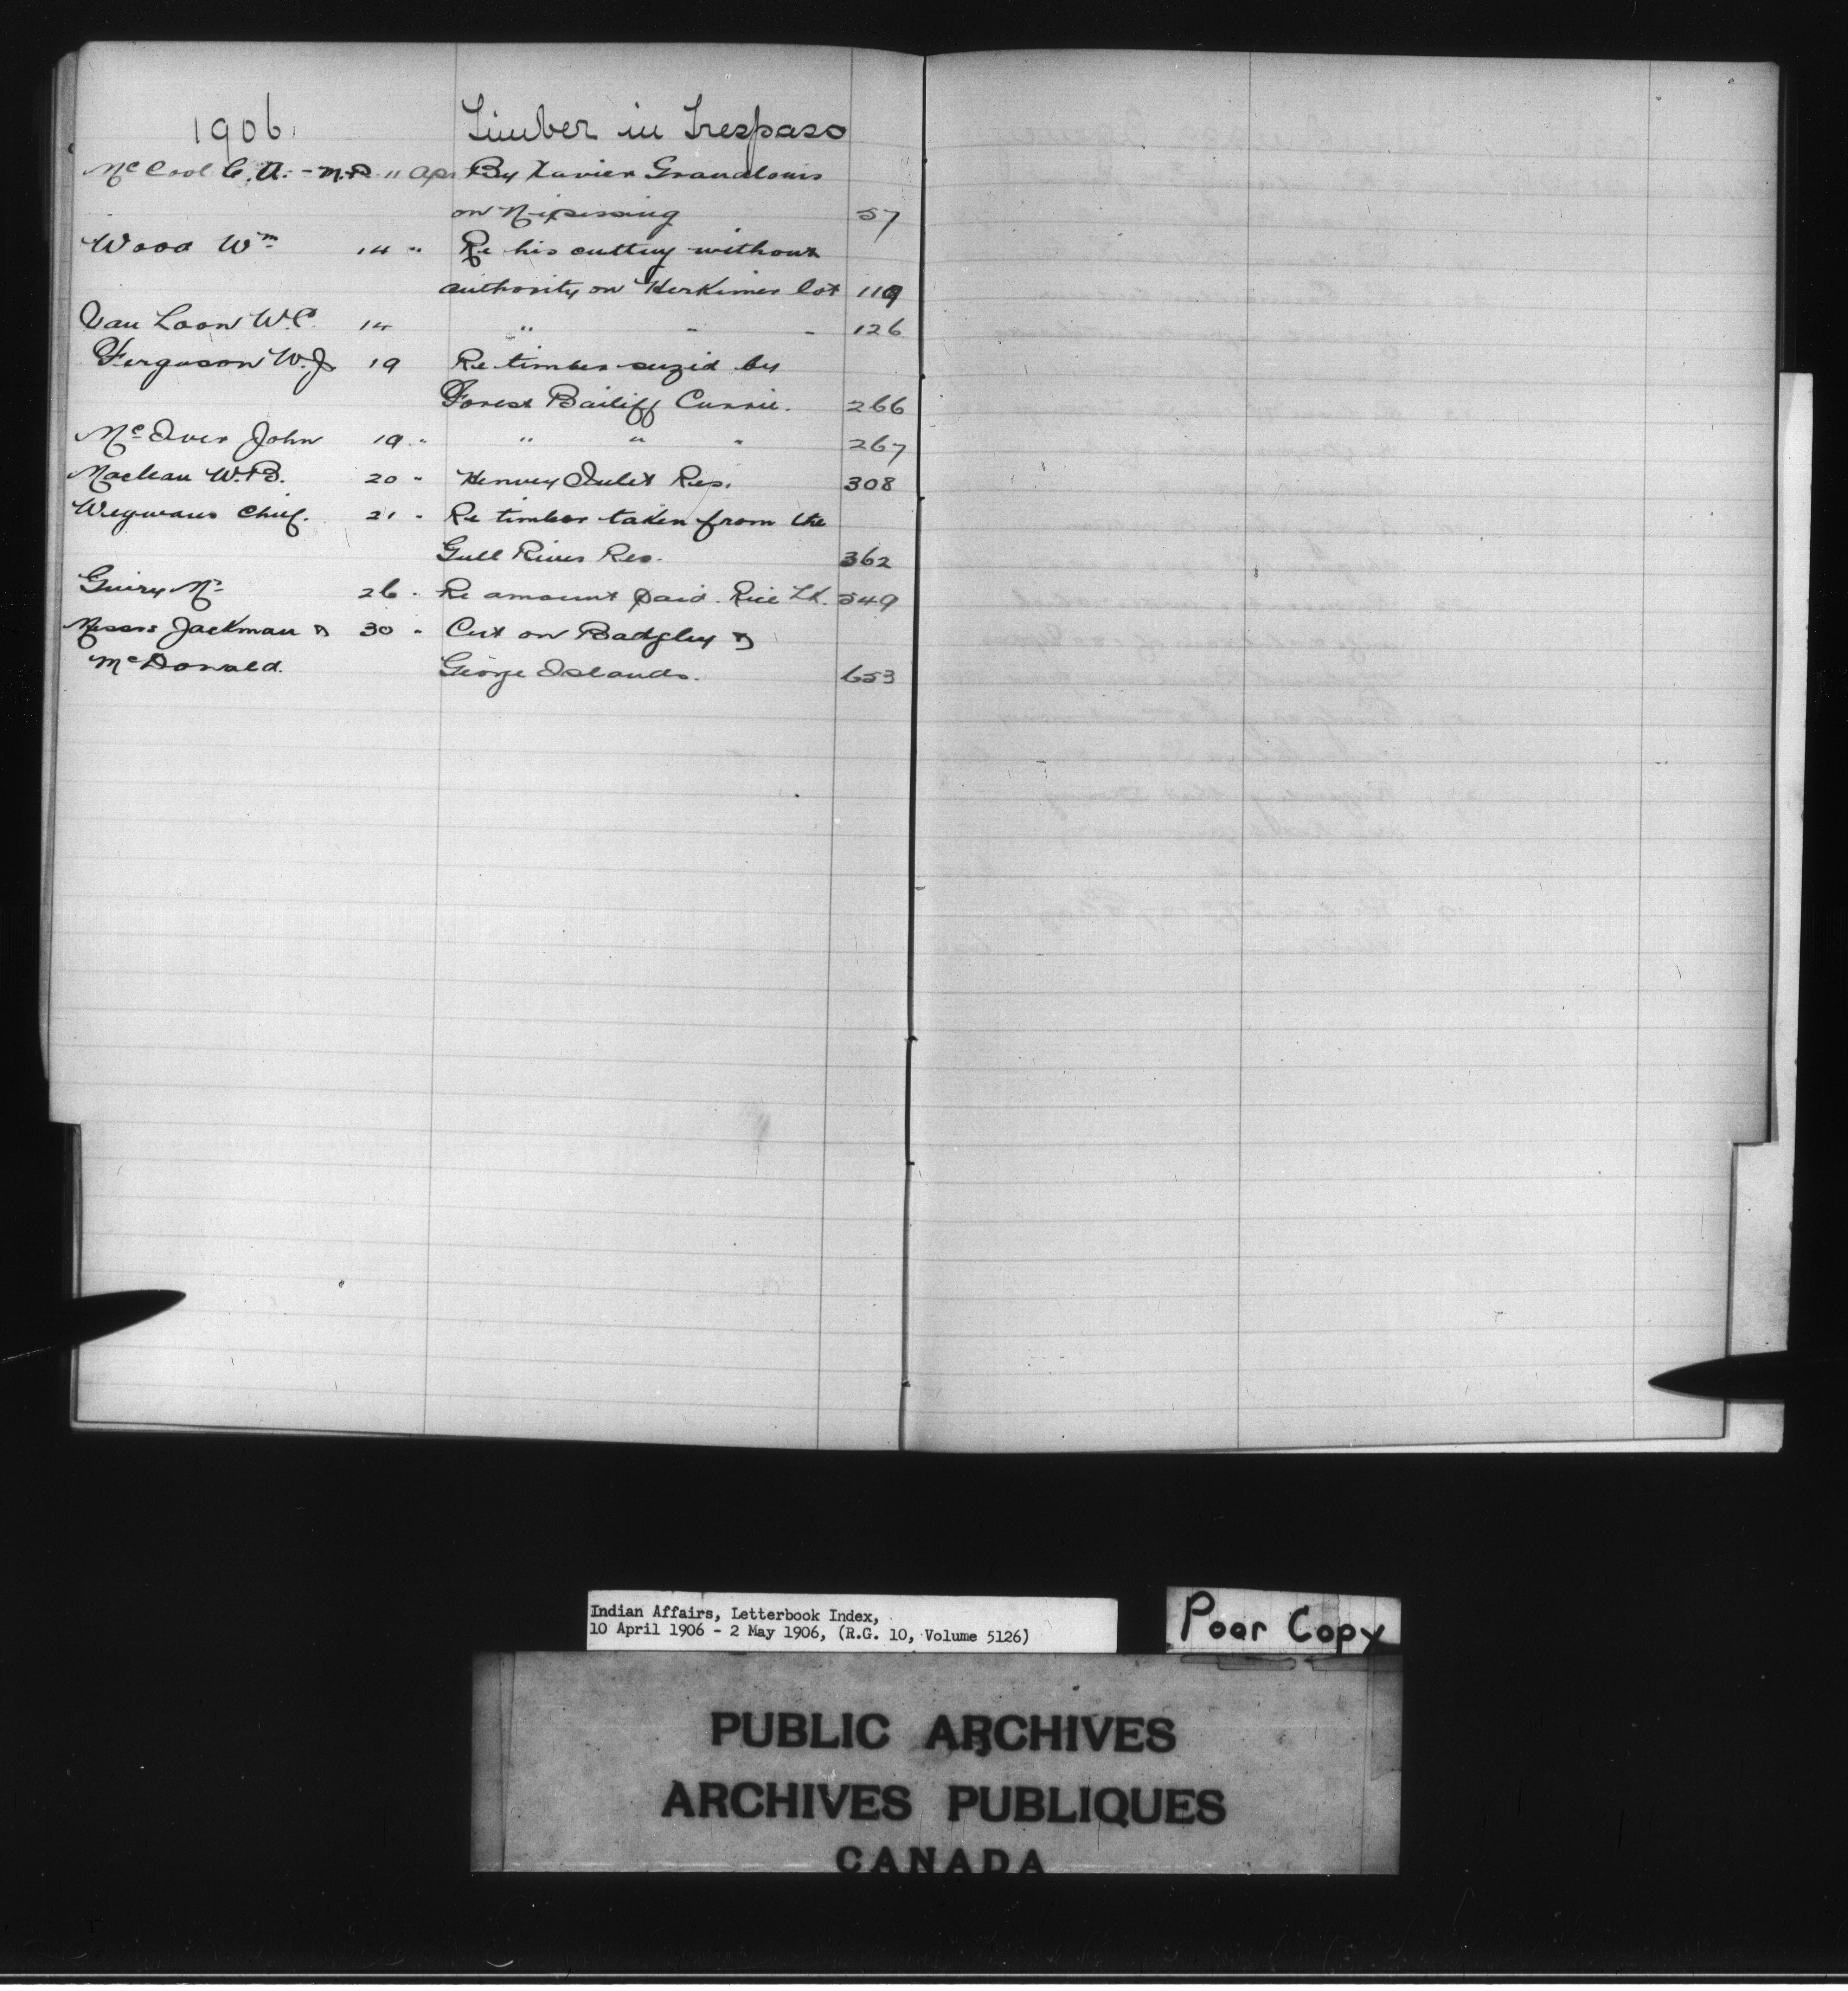 1906. Timber in Trespass
McCool C. A. - M.P. 11 Apr By Xavier Grandlouis
on Nipissing 57
Wood Wm 14 " Re his cutting without
authority on Herkimer lot 119
Van Loon W.C. 14 " " " 126
Ferguson W.J. 19 Re timber seized by
Forest Bailiff Currie. 266
McIver John 19 " " " " 267
Maclean W.B. 20 " Henvey Inlet Res. 308
Chief. 21 " Re timber taken from the
Gull River Res. 362
26 " Re amount paid. Rice Lk. 549
Messrs Jackman & 30 " Cut on Badgley &
McDonald. George Islands. 653
Indian Affairs, Letterbook Index,
10 April 1906 - 2 May 1906, (R.G. 10, Volume 5126)
Poor Copy
PUBLIC ARCHIVES
ARCHIVES PUBLIQUES
CANADA